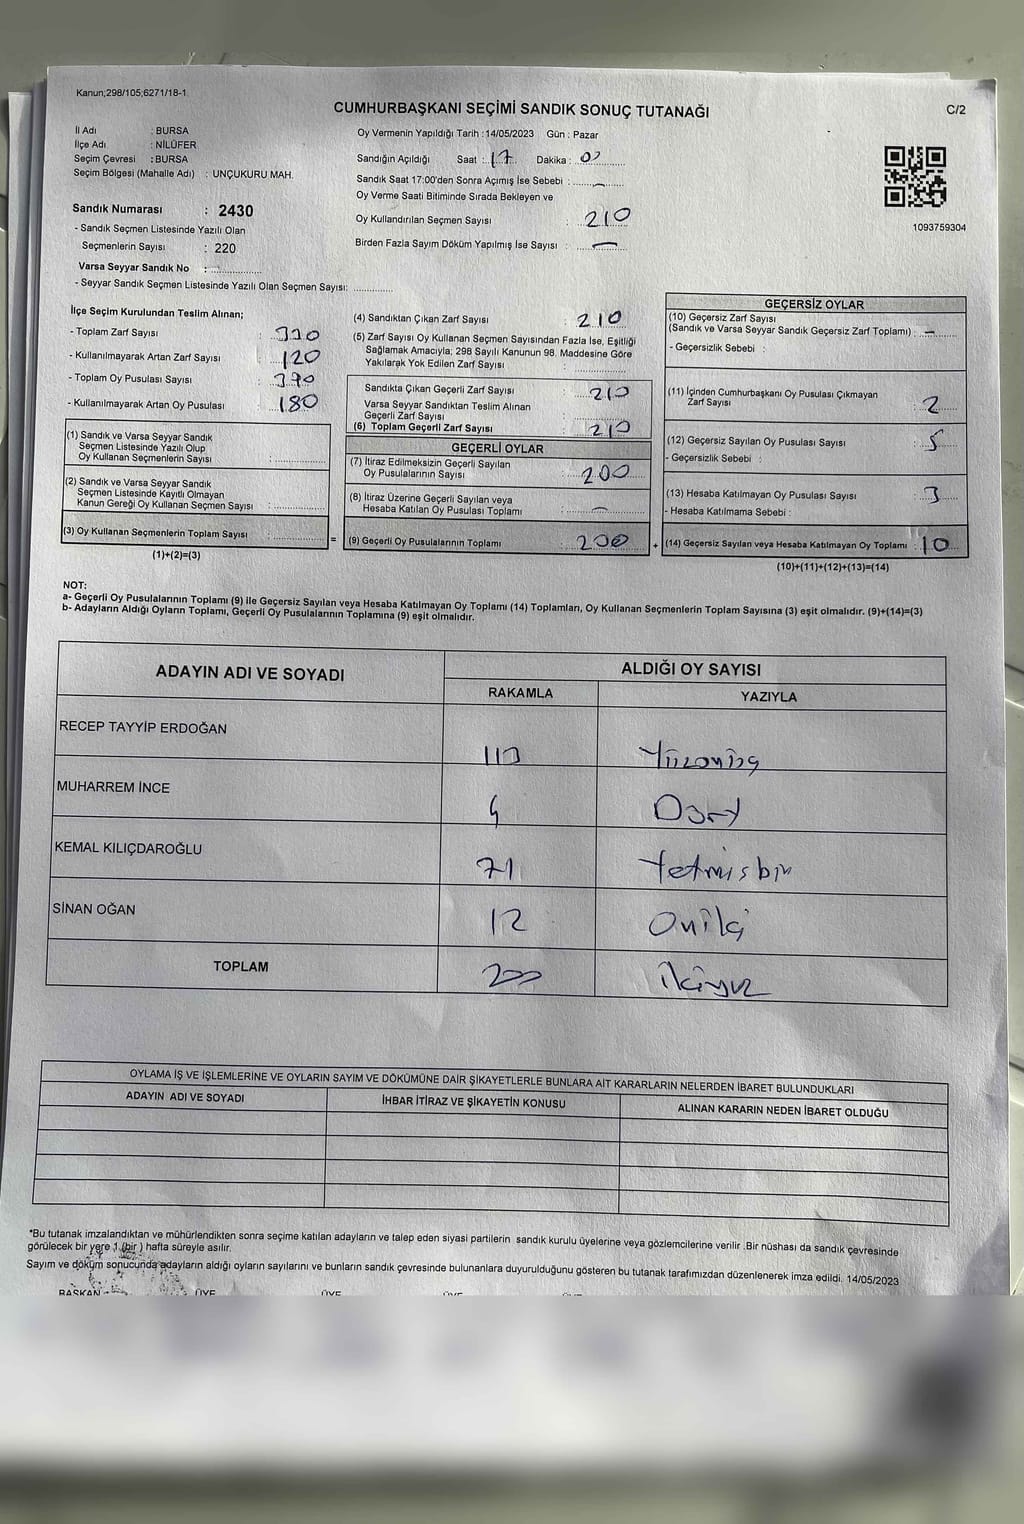 Kanun;298/105;6271/18-1
CUMHURBAŞKANI SEÇİMİ SANDIK SONUÇ TUTANAĞI
C/2
İl Adı : BURSA
İlçe Adı : NİLÜFER
Seçim Çevresi : BURSA
Seçim Bölgesi (Mahalle Adı) : UNÇUKURU MAH.
Sandık Numarası : 2430
- Sandık Seçmen Listesinde Yazılı Olan
Seçmenlerin Sayısı : 220
Varsa Seyyar Sandık No :
- Seyyar Sandık Seçmen Listesinde Yazılı Olan Seçmen Sayısı:
Oy Vermenin Yapıldığı Tarih :14/05/2023 Gün : Pazar
Sandığın Açıldığı Saat : 17 Dakika : 00
Sandık Saat 17:00'den Sonra Açımış İse Sebebi : —
Oy Verme Saati Bitiminde Sırada Bekleyen ve
Oy Kullandırılan Seçmen Sayısı : 210
Birden Fazla Sayım Döküm Yapılmış İse Sayısı : —
1093759304
İlçe Seçim Kurulundan Teslim Alınan;
- Toplam Zarf Sayısı : 330
- Kullanılmayarak Artan Zarf Sayısı : 120
- Toplam Oy Pusulası Sayısı : 390
- Kullanılmayarak Artan Oy Pusulası : 180
(1) Sandık ve Varsa Seyyar Sandık
Seçmen Listesinde Yazılı Olup
Oy Kullanan Seçmenlerin Sayısı :
(2) Sandık ve Varsa Seyyar Sandık
Seçmen Listesinde Kayıtlı Olmayan
Kanun Gereği Oy Kullanan Seçmen Sayısı :
(3) Oy Kullanan Seçmenlerin Toplam Sayısı :
(1)+(2)=(3)
=
(4) Sandıktan Çıkan Zarf Sayısı : 210
(5) Zarf Sayısı Oy Kullanan Seçmen Sayısından Fazla İse, Eşitliği
Sağlamak Amacıyla; 298 Sayılı Kanunun 98. Maddesine Göre
Yakılarak Yok Edilen Zarf Sayısı :
Sandıkta Çıkan Geçerli Zarf Sayısı : 210
Varsa Seyyar Sandıktan Teslim Alınan
Geçerli Zarf Sayısı :
(6) Toplam Geçerli Zarf Sayısı : 210
GEÇERLİ OYLAR
(7) İtiraz Edilmeksizin Geçerli Sayılan
Oy Pusulalarının Sayısı : 200
(8) İtiraz Üzerine Geçerli Sayılan veya
Hesaba Katılan Oy Pusulası Toplamı : —
(9) Geçerli Oy Pusulalarının Toplamı : 200
+
GEÇERSİZ OYLAR
(10) Geçersiz Zarf Sayısı
(Sandık ve Varsa Seyyar Sandık Geçersiz Zarf Toplamı) : —
- Geçersizlik Sebebi :
(11) İçinden Cumhurbaşkanı Oy Pusulası Çıkmayan
Zarf Sayısı : 2
(12) Geçersiz Sayılan Oy Pusulası Sayısı : 5
- Geçersizlik Sebebi :
(13) Hesaba Katılmayan Oy Pusulası Sayısı : 3
- Hesaba Katılmama Sebebi :
(14) Geçersiz Sayılan veya Hesaba Katılmayan Oy Toplamı : 10
(10)+(11)+(12)+(13)=(14)
NOT:
a- Geçerli Oy Pusulalarının Toplamı (9) ile Geçersiz Sayılan veya Hesaba Katılmayan Oy Toplamı (14) Toplamları, Oy Kullanan Seçmenlerin Toplam Sayısına (3) eşit olmalıdır. (9)+(14)=(3)
b- Adayların Aldığı Oyların Toplamı, Geçerli Oy Pusulalarının Toplamına (9) eşit olmalıdır.
ADAYIN ADI VE SOYADI
ALDIĞI OY SAYISI
RAKAMLA YAZIYLA
RECEP TAYYİP ERDOĞAN 113 Yüzonüç
MUHARREM İNCE 4 Dört
KEMAL KILIÇDAROĞLU 71 Yetmişbir
SİNAN OĞAN 12 Oniki
TOPLAM 200 ikiyuz
OYLAMA İŞ VE İŞLEMLERİNE VE OYLARIN SAYIM VE DÖKÜMÜNE DAİR ŞİKAYETLERLE BUNLARA AİT KARARLARIN NELERDEN İBARET BULUNDUKLARI
ADAYIN ADI VE SOYADI İHBAR İTİRAZ VE ŞİKAYETİN KONUSU ALINAN KARARIN NEDEN İBARET OLDUĞU
*Bu tutanak imzalandıktan ve mühürlendikten sonra seçime katılan adayların ve talep eden siyasi partilerin sandık kurulu üyelerine veya gözlemcilerine verilir .Bir nüshası da sandık çevresinde
görülecek bir yere 1 (bir) hafta süreyle asılır.
Sayım ve döküm sonucunda adayların aldığı oyların sayılarını ve bunların sandık çevresinde bulunanlara duyurulduğunu gösteren bu tutanak tarafımızdan düzenlenerek imza edildi. 14/05/2023
BAŞKAN ÜYE ÜYE ÜYE ÜYE